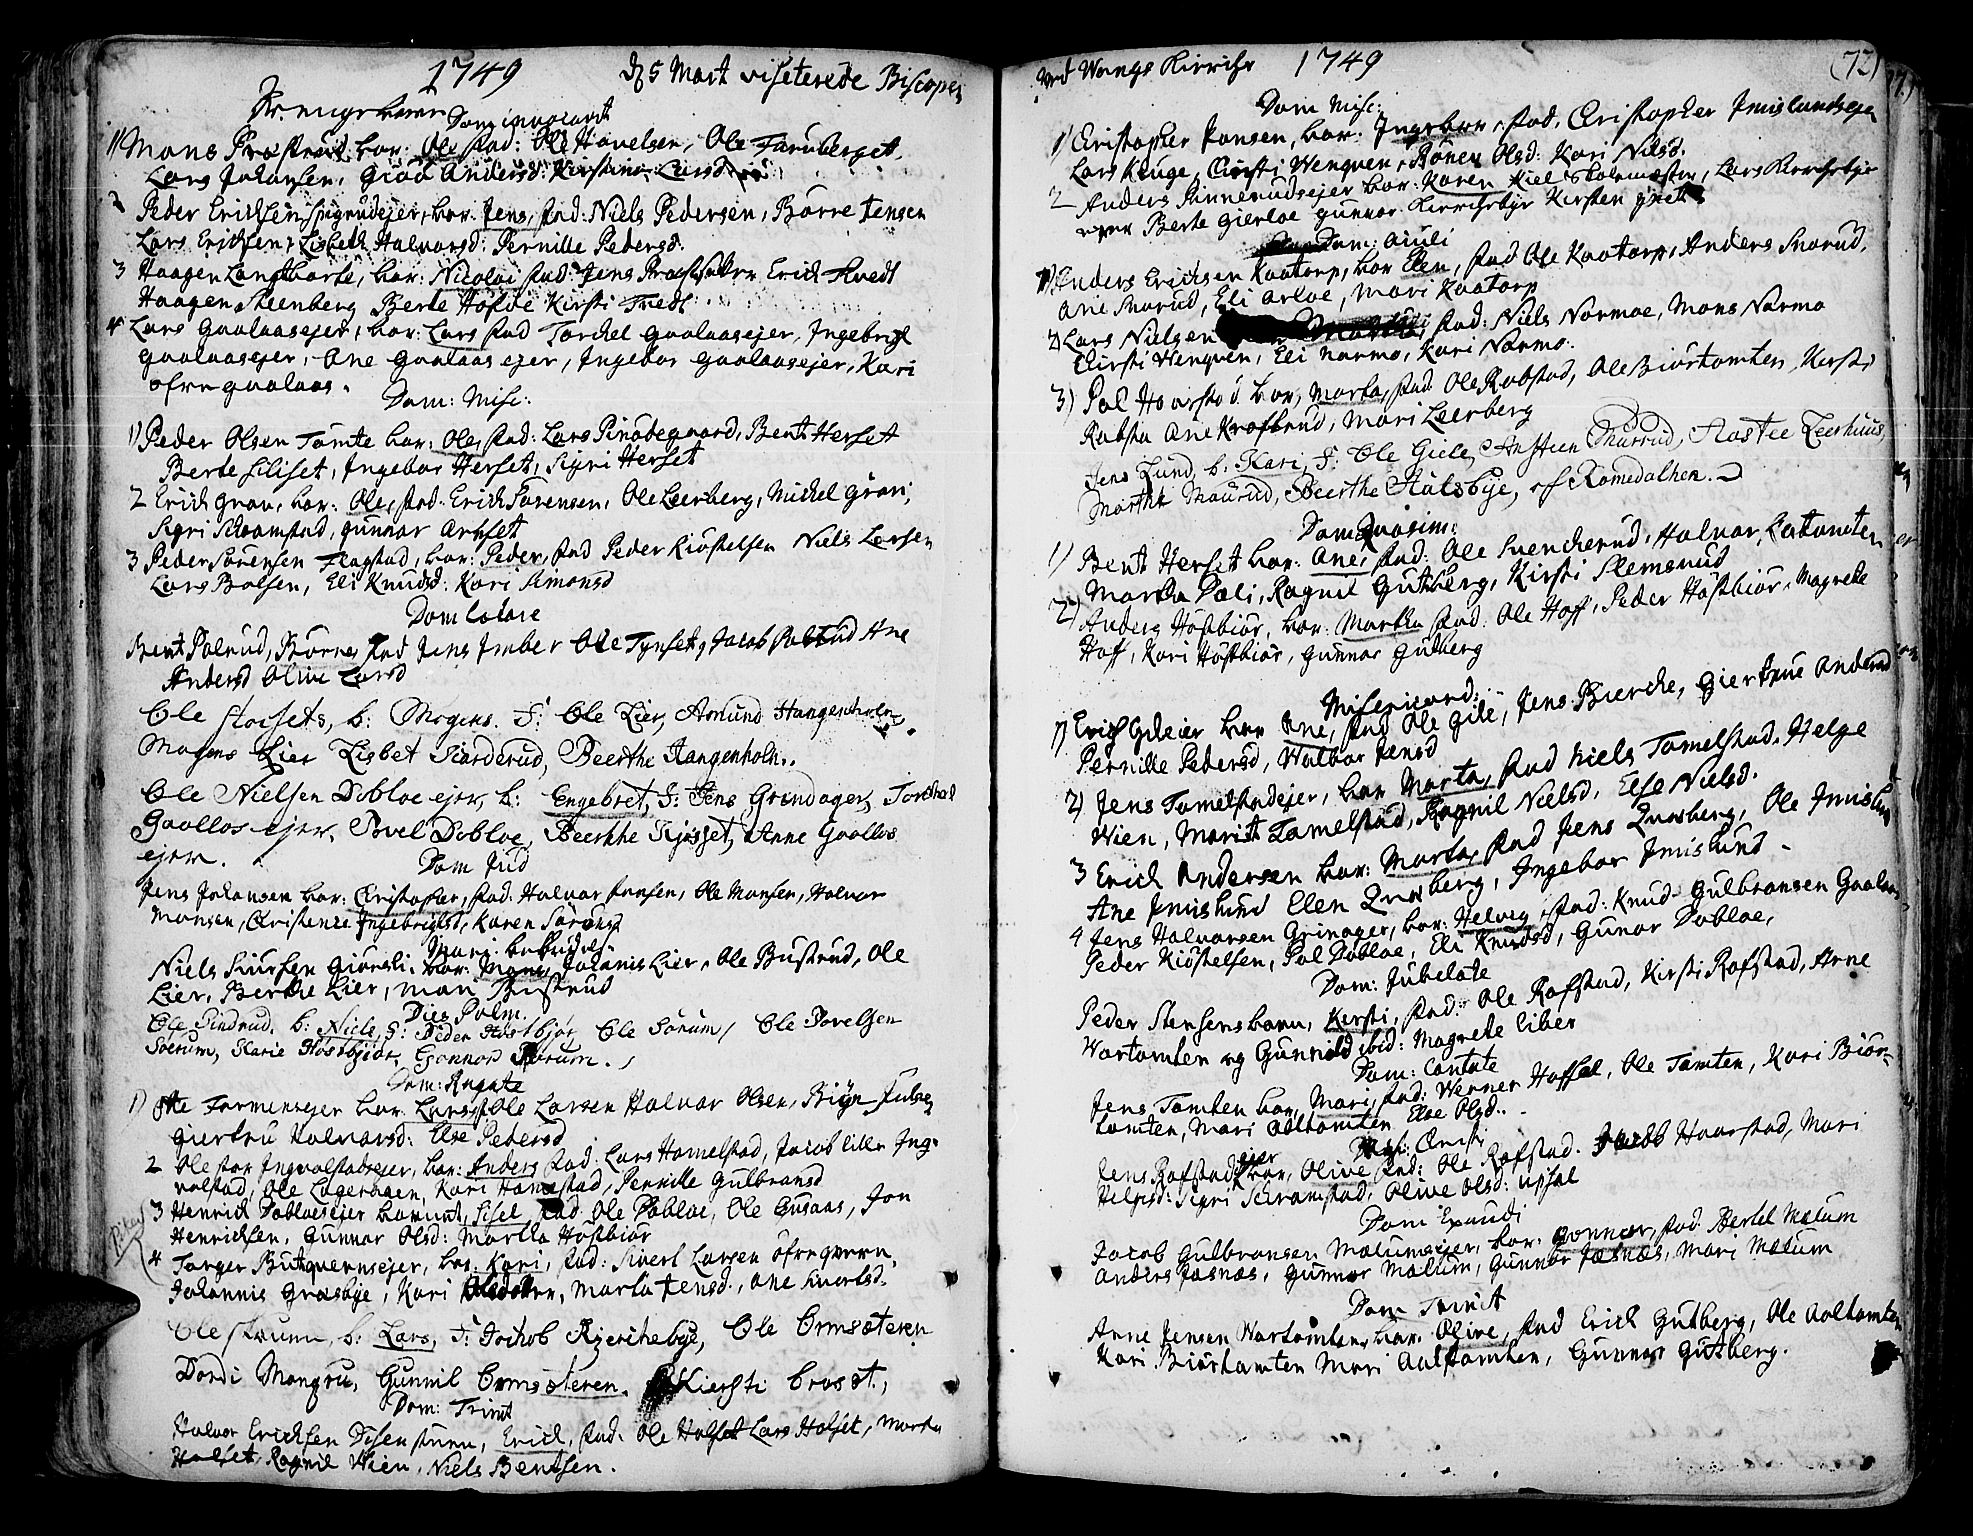 1749 d 5 Mart visiterede Biscopen
Dom invocavit
1) Mons Prestrud, bar: Ole stad: Ole Havelsen, Ole Farnberget,
Lars Johansen, Giøa Andersd: Kirstine Larsd:
2 Peder Erichsen, bar: Jens, stad: Niels Pedersen, Børre Jensen
Lars Erichsen, Lisbeth Halvarsd: Pernille Pedersd:
3 Haagen Langthorte, bar: Nicolai stad: Jens Erich Tvedt
Haagen Steenberg Berte Hofde Kirsti Tvedt
4 Lars Gaalaasejer, bar: Lars stad Torckel Gaalaasejer, Ingebrigt
Gaalaasejer, Ane Gaalaasejer, Ingebor Gaalaasejer, Kari
øfre Gaalaas.
Dom: Misc:
1) Peder Olsen Tomte bar: Ole, stad: Lars Finsbegaard, Bent Herset
Berte Siliset, Ingebor Herset, Sigri Herset
2 Erich Grav, bar: Ole, stad: Erich Sørensen, Ole Leerberg, Michel Grav,
Sigri Schramstad, Gunnor Arnset
3 Peder Sørensen Flagstad, bar: Peder, stad Peder Kiøstelsen Niels Larsen
Lars Bolsen, Eli Knudsd: Kari Simonsd
Dom Lætare
Bent Polrud, Børre, stad Jens Imber Ole Tynset, Jacob Polrud Ane
Andersd Olive Larsd
Ole Storsets, b: Mogens. F: Ole Lier, Amund Hangenholen
Mogens Lier Lisbet Fiorderud, Beerthe Hangenholn.
Ole Nielsen Dobloe ejer, b: Engebret, F: Jens Grindager, Torchel
Gaallos ejer, Povel Dobloe, Beerthe Kjosset, Anne Gaallos
ejer.
Dom Jud
Jens Johansen bar: Christopher, stad: Halvar Jensen, Ole Monsen, Halvar
Monsen, Christence Ingebrigtsd, Karen Sørensd
Mari: bebudels:
Niels Siursen Giørsli, bar: Mons, Johanis Lier, Ole Bustrud, Ole
Lier, Berthe Lier, Mari Bustrud
Dies Palm.
Ole Pindrud, b: Niels, F: Peder Høstbjør Ole Sørum, Ole Povelsen
Soerum, Karie Høstbjør, Gonnor Sorum.
Dom: Rogate
1) Ole Formensejer bar: Lars, st Ole Larsen Halvar Olsen, Brijn Julsen
Giertru Halvarsd: Else Pedersd
2 Ole Ingvalstadsejer, bar: Anders stad: Lars Hamelstad, Jacob lille Ing-
valstad, Ole Lagerhagen, Kari Hamestad, Pernille Gulbransd
3 Henrich Dobloesejer, Sisel, stad Ole Dobloe, Ole Jon
Henrichsen, Gunnor Olsd: Martha Høstbiør
4 Torger Butqvernsejer, bar: Kari, stad: Siverl Larsen øfre qvern,
Johannis Grosbye, Kari, Marta Jensd, Ane Sivertsd.
Ole strunn, b: Lars, F: Jochob Kjerchebye, Ole Ormsæteren
Dordi Mongru, Gunnil Ormsæteren. Kiersti Crosset,
Dom: Trinit
Halvor Erichsen Disenstuen, Erich, stad: Ole Holset Lars Holset, Marta
Holset, Ragnil Wien, Niels Bentsen.
ved Wangs Kirche 1749 (72)
Dom Misc:
1) Cristopher Jonsen, bar: Ingebor, stad, Christopher Imislundsejer
Lars Kauge, Cirsti Wenqven, Rønev Olsd: Kari Nilsd.
2 Anders Finnerudsejer bar: Karen Kiel Skolemester, Lars Kirchebye
Berte Gierloe Gunnor Kirchebye Kirsten
Dom: Quasi
1) Anders Erichsen Kaatorp, bar Elen, stad Ole Kaatorp, Anders Snarud,
Ane Snarud, Eli Arloe, Mari Kaatorp
2) Lars Nielsen, stad: Niels Normoe, Mons Narmo
Cirsti Wenqven, Eli Narmo, Kari Narmo.
3) Pol Hoarstod bar, Marta, stad Ole Robstad, Ole Biørtomten, Kersti
Robsta Ane Krosbrud, Mari Leerberg
Jens Lund, b: Kari, F: Ole Giele, Ansteen Maurud, Aastee Leerhuus,
Marthe Maurud, Beerthe Stalsbye, af Romedalhen.
Dom Quasim:
1) Bent Herset bar: Ane, stad: Ole Svencherud, Halvar
Martha Dæli, Ragnil Gutberg, Kirsti Slemsrud
2) Anders Høstbiør, bar: Martha stad: Ole Hoff, Peder Høstbiør, Magrete
Hoff, Kari Høstbiør, Gunnor Gutberg
Misericord:
1) Erich Gileier bar Ane, stad Ole Gile, Jens Bierche, Giertrue Andersd
Pernille Pedersd, Walbor Jensd
2) Jens Tomelstadejer, bar Marta, stad Niels Tomelstad, Helge
Wien, Marit Tomelstad, Ragnil Nielsd, Else Nielsd.
3 Erich Andersen bar: Marta, stad Jens Qvasberg, Ole Imislund
Ane Imislund Elen Qvasberg, Ingebor Imislund
4 Jens Halvarsen Grinager, bar: Helvig, stad: Knud Gulbransen Gaalaas,
Peder Kiøstelsen, Pol Dobloe, Eli Knudsd, Gunor Dobloe,
Dom: Jubelate
Peder Stensens barn, Kersti, stad: Ole Rofstad, Kirsti Rofstad, Arne
Wortomten og Gunnild ibid: Magrete Liber
Dom: Cantate
Jens Tomten bar, Mari, stad: Werner Hoffsæl, Ole Tomten, Kari Biør-
tomten, Mari Aaltomten Else Olsd.
Christi
Jens Rofstad ejer bar, Olive stad: Ole Rofstad. Jacob Haarstad, Mari
Helgisd: Sigri Schramstad, Olive Olsd: Upsal
Dom Exaudi
Jacob Gulbransen Mælumsejer, bar: Gonnor, stad Bertel Mælum
Anders Jæsnæs, Gunnor Mælum, Gunnor Jæsnæs, Mari Mælum
Dom Trinit
Arne Jensen Wortomten, bar: Olive, stad Erich Gutberg, Ole Aoltomten
Kari Biørtomten Mari Aaltomten, Gunnor Gutberg.